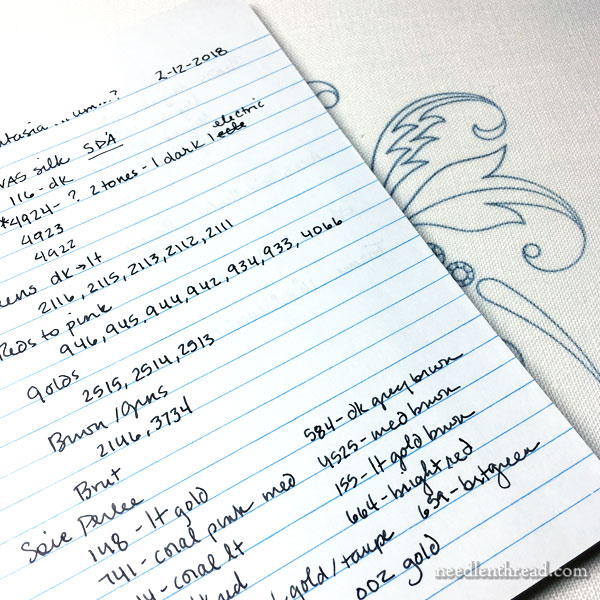 2-12-2018
um...?
silk SDA
electric
116 - dk
*4924 - ? 2 tones - 1 dark 1
4923
4922
dk → lt
2116, 2115, 2113, 2112, 2111
Reds to pink
946, 945, 944, 942, 934, 933, 4066
golds
2515, 2514, 2513
Brown/Grns
2146, 3734
Brut
Soie Perlee
148 - lt gold
741 - coral pink med
4 - coral lt
red
584 - dk grey brown
4525 - med brown
155 - lt gold brown
664 - bright red
639 - brt green
gold/taupe
002 gold
needlenthread.com